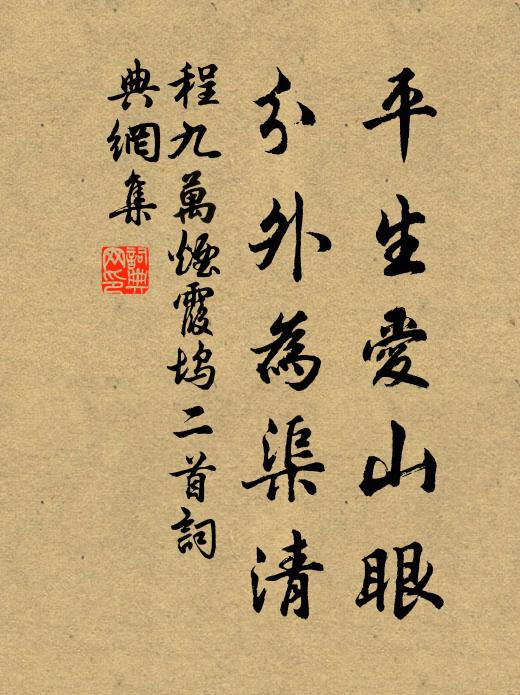 平生愛山眼
分外為渠清
程九萬煙霞塢二首詞
典網集
詞典
网印